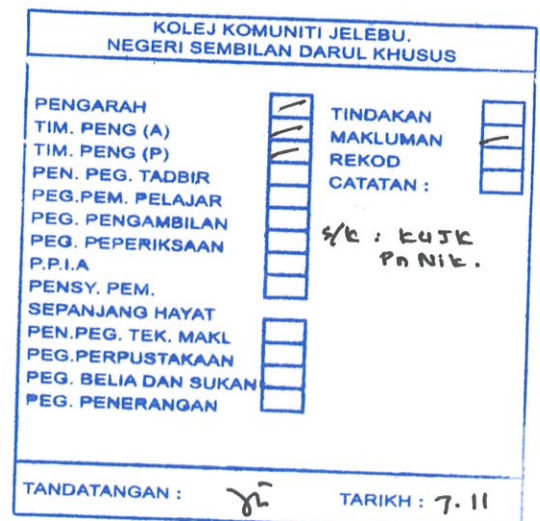 KOLEJ KOMUNITI JELEBU.
NEGERI SEMBILAN DARUL KHUSUS
PENGARAH
TIM. PENG (A)
TIM. PENG (P)
PEN. PEG. TADBIR
PEG.PEM. PELAJAR
PEG. PENGAMBILAN
PEG. PEPERIKSAAN
P.P.I.A
PENSY. PEM.
SEPANJANG HAYAT
PEN.PEG. TEK. MAKL
PEG.PERPUSTAKAAN
PEG. BELIA DAN SUKAN
PEG. PENERANGAN
TINDAKAN
MAKLUMAN
REKOD
CATATAN :
s/k : KUJK
Pn Nik.
TANDATANGAN :
TARIKH : 7.11